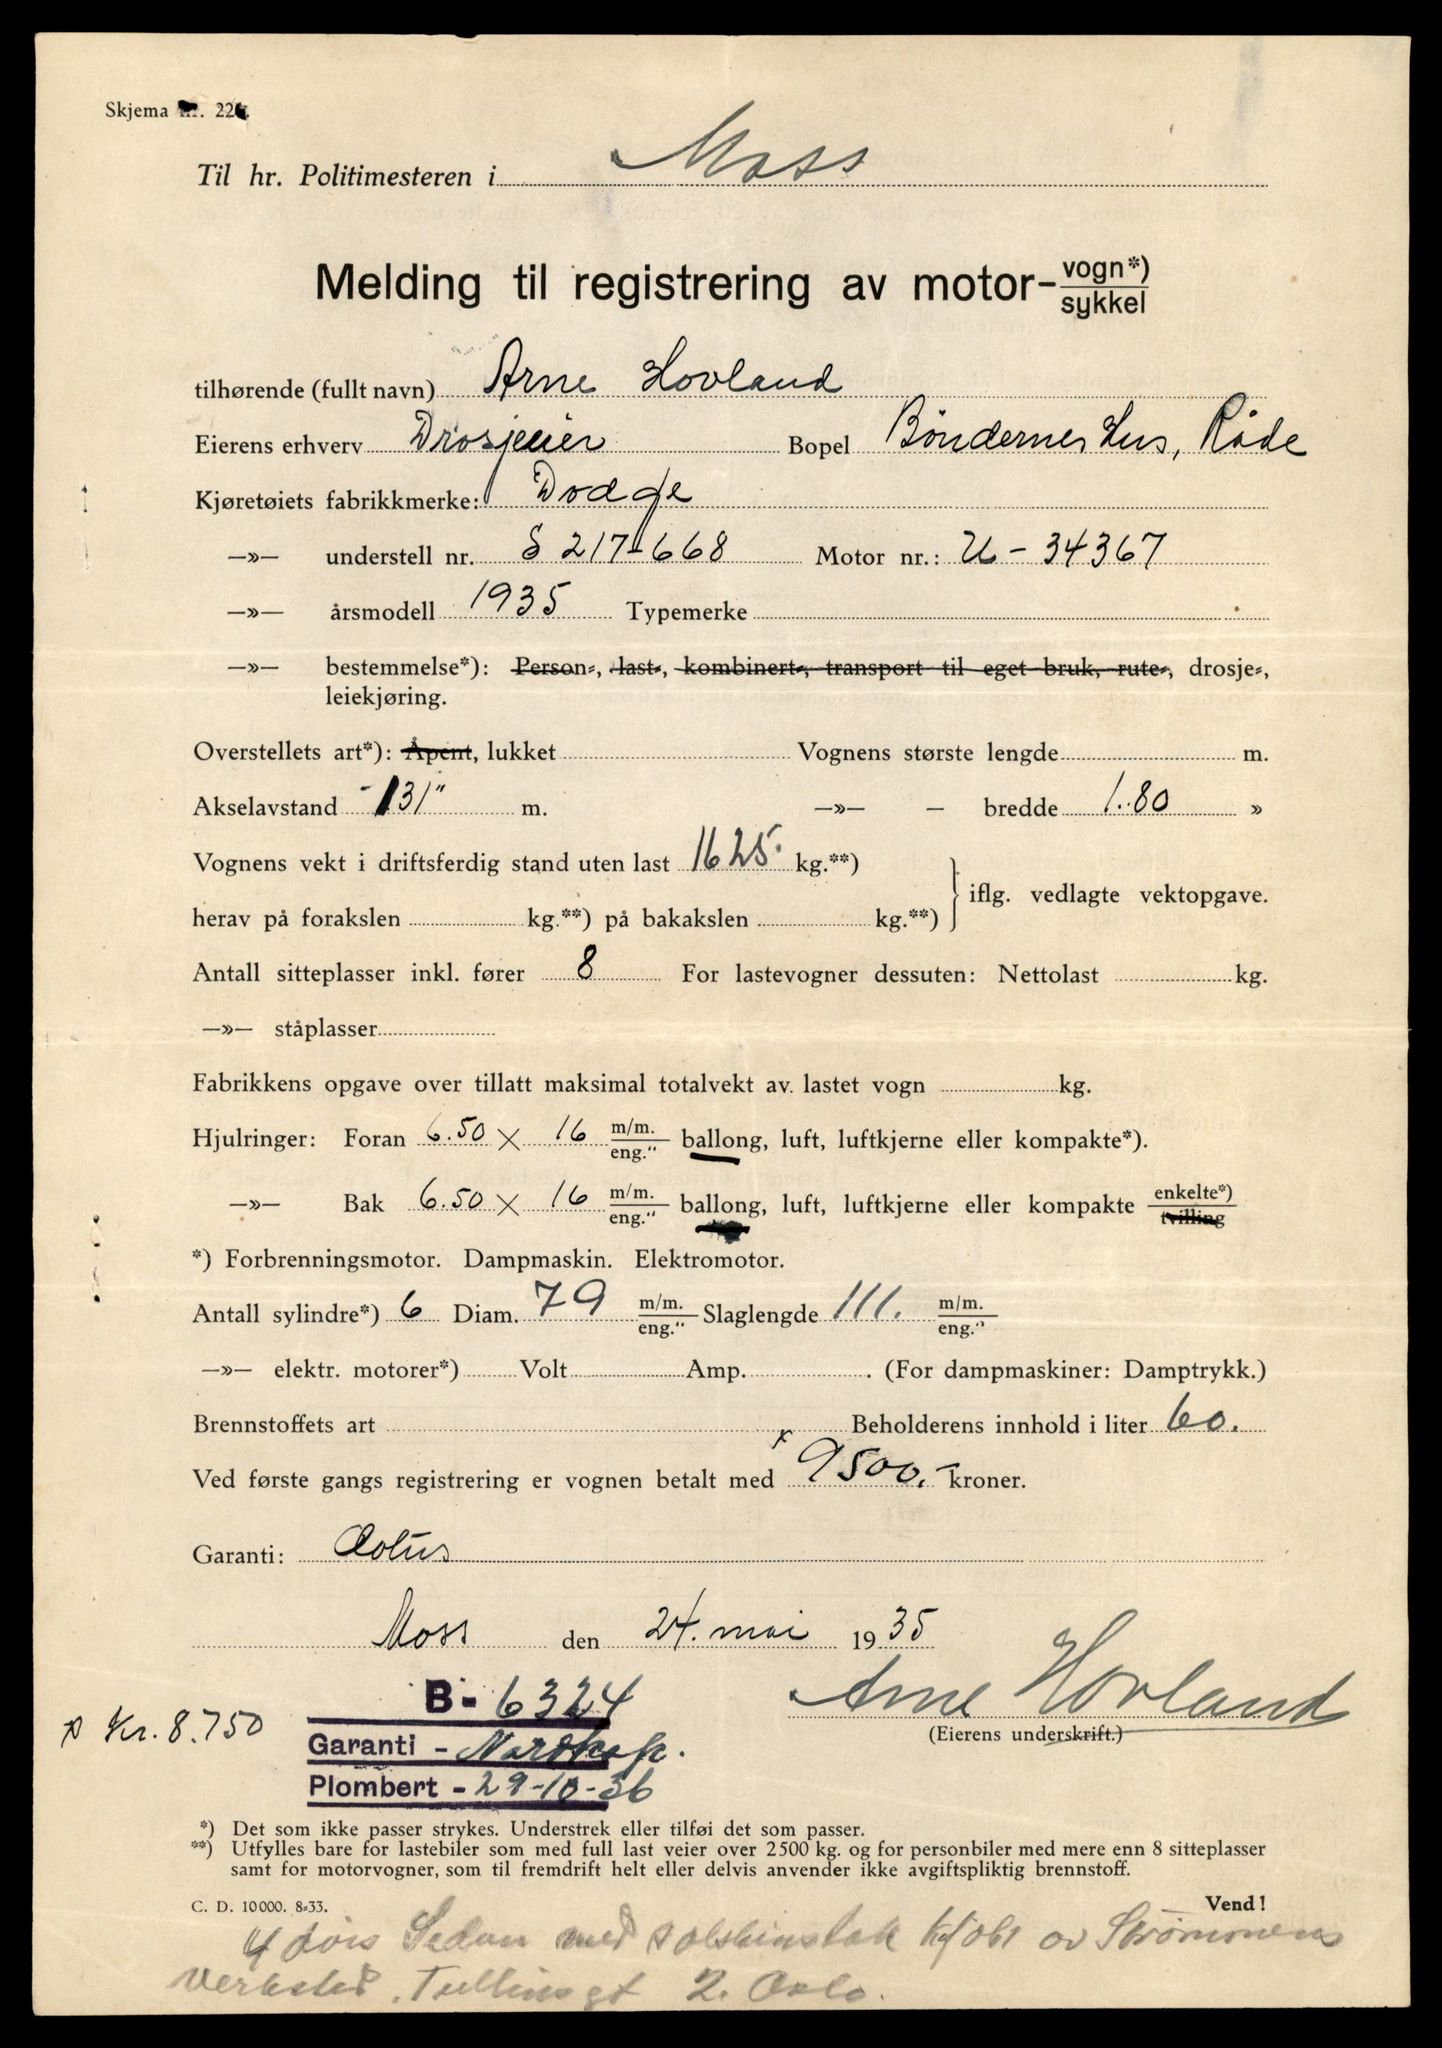 Skjema nr. 22
Til hr. Politimesteren i Moss
Melding til registrering av motor- vogn*) / sykkel
tilhørende (fullt navn) Arne Hovland
Eierens erhverv Drosjeeier Bopel Bøndernes Hus, Råde
Kjøretøiets fabrikkmerke: Dodge
—»— understell nr. S 217-668 Motor nr.: U-34367
—»— årsmodell 1935 Typemerke
—»— bestemmelse*): Person-, last-, kombinert-, transport til eget bruk, rute-, drosje-,
leiekjøring.
Overstellets art*): Åpent, lukket Vognens største lengde m.
Akselavstand 131" m. —»— - bredde 1.80 »
Vognens vekt i driftsferdig stand uten last 1625. kg.**)
iflg. vedlagte vektopgave.
herav på forakslen kg.**) på bakakslen kg.**)
Antall sitteplasser inkl. fører 8 For lastevogner dessuten: Nettolast kg.
—»— ståplasser
Fabrikkens opgave over tillatt maksimal totalvekt av. lastet vogn kg.
Hjulringer: Foran 6.50 × 16 m/m. / eng." ballong, luft, luftkjerne eller kompakte*).
—»— Bak 6.50 × 16 m/m. / eng." ballong, luft, luftkjerne eller kompakte enkelte*) / tvilling
*) Forbrenningsmotor. Dampmaskin. Elektromotor.
Antall sylindre*) 6 Diam. 79 m/m. / eng." Slaglengde 111. m/m. / eng."
—»— elektr. motorer*) Volt Amp. . (For dampmaskiner: Damptrykk.)
Brennstoffets art Beholderens innhold i liter 60.
Ved første gangs registrering er vognen betalt med x 9500.- kroner.
Garanti: Æolus
Moss den 24. mai 1935
B- 6324
Arne Hovland
x Kr. 8.750
(Eierens underskrift.)
Garanti -
Plombert - 29-10-36
*) Det som ikke passer strykes. Understrek eller tilføi det som passer.
**) Utfylles bare for lastebiler som med full last veier over 2500 kg. og for personbiler med mere enn 8 sitteplasser
samt for motorvogner, som til fremdrift helt eller delvis anvender ikke avgiftspliktig brennstoff.
C. D. 10000. 8-33. Vend!
4 dørs Sedan med solskinstak kjøbt av Strømmens
Verksted. Tullinsgt 2. Oslo.